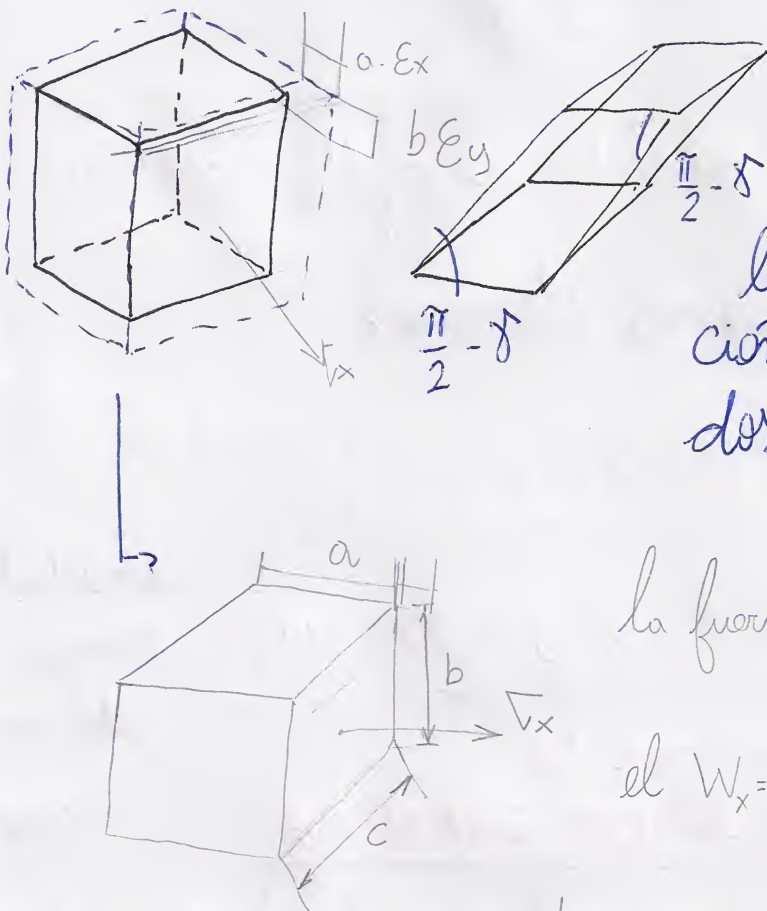 a·εx
bεy
π/2 - γ
π/2 - γ
σx
l
ción
dos
a
b
c
σx
la fuer
el Wx=